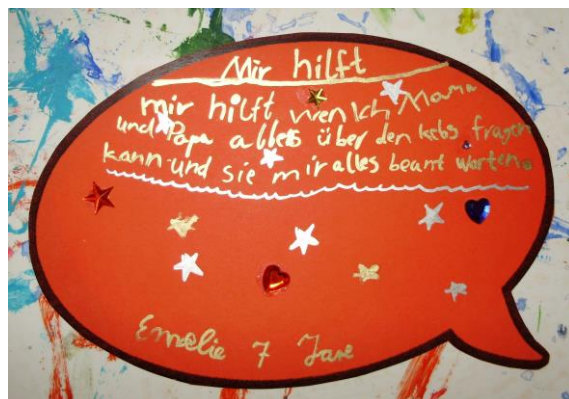 Mir hilft
mir hilft wen ich Mama
und Papa alles über den kebs fragen
kann und sie mir alles beamt worten.
Emelie 7 Jare